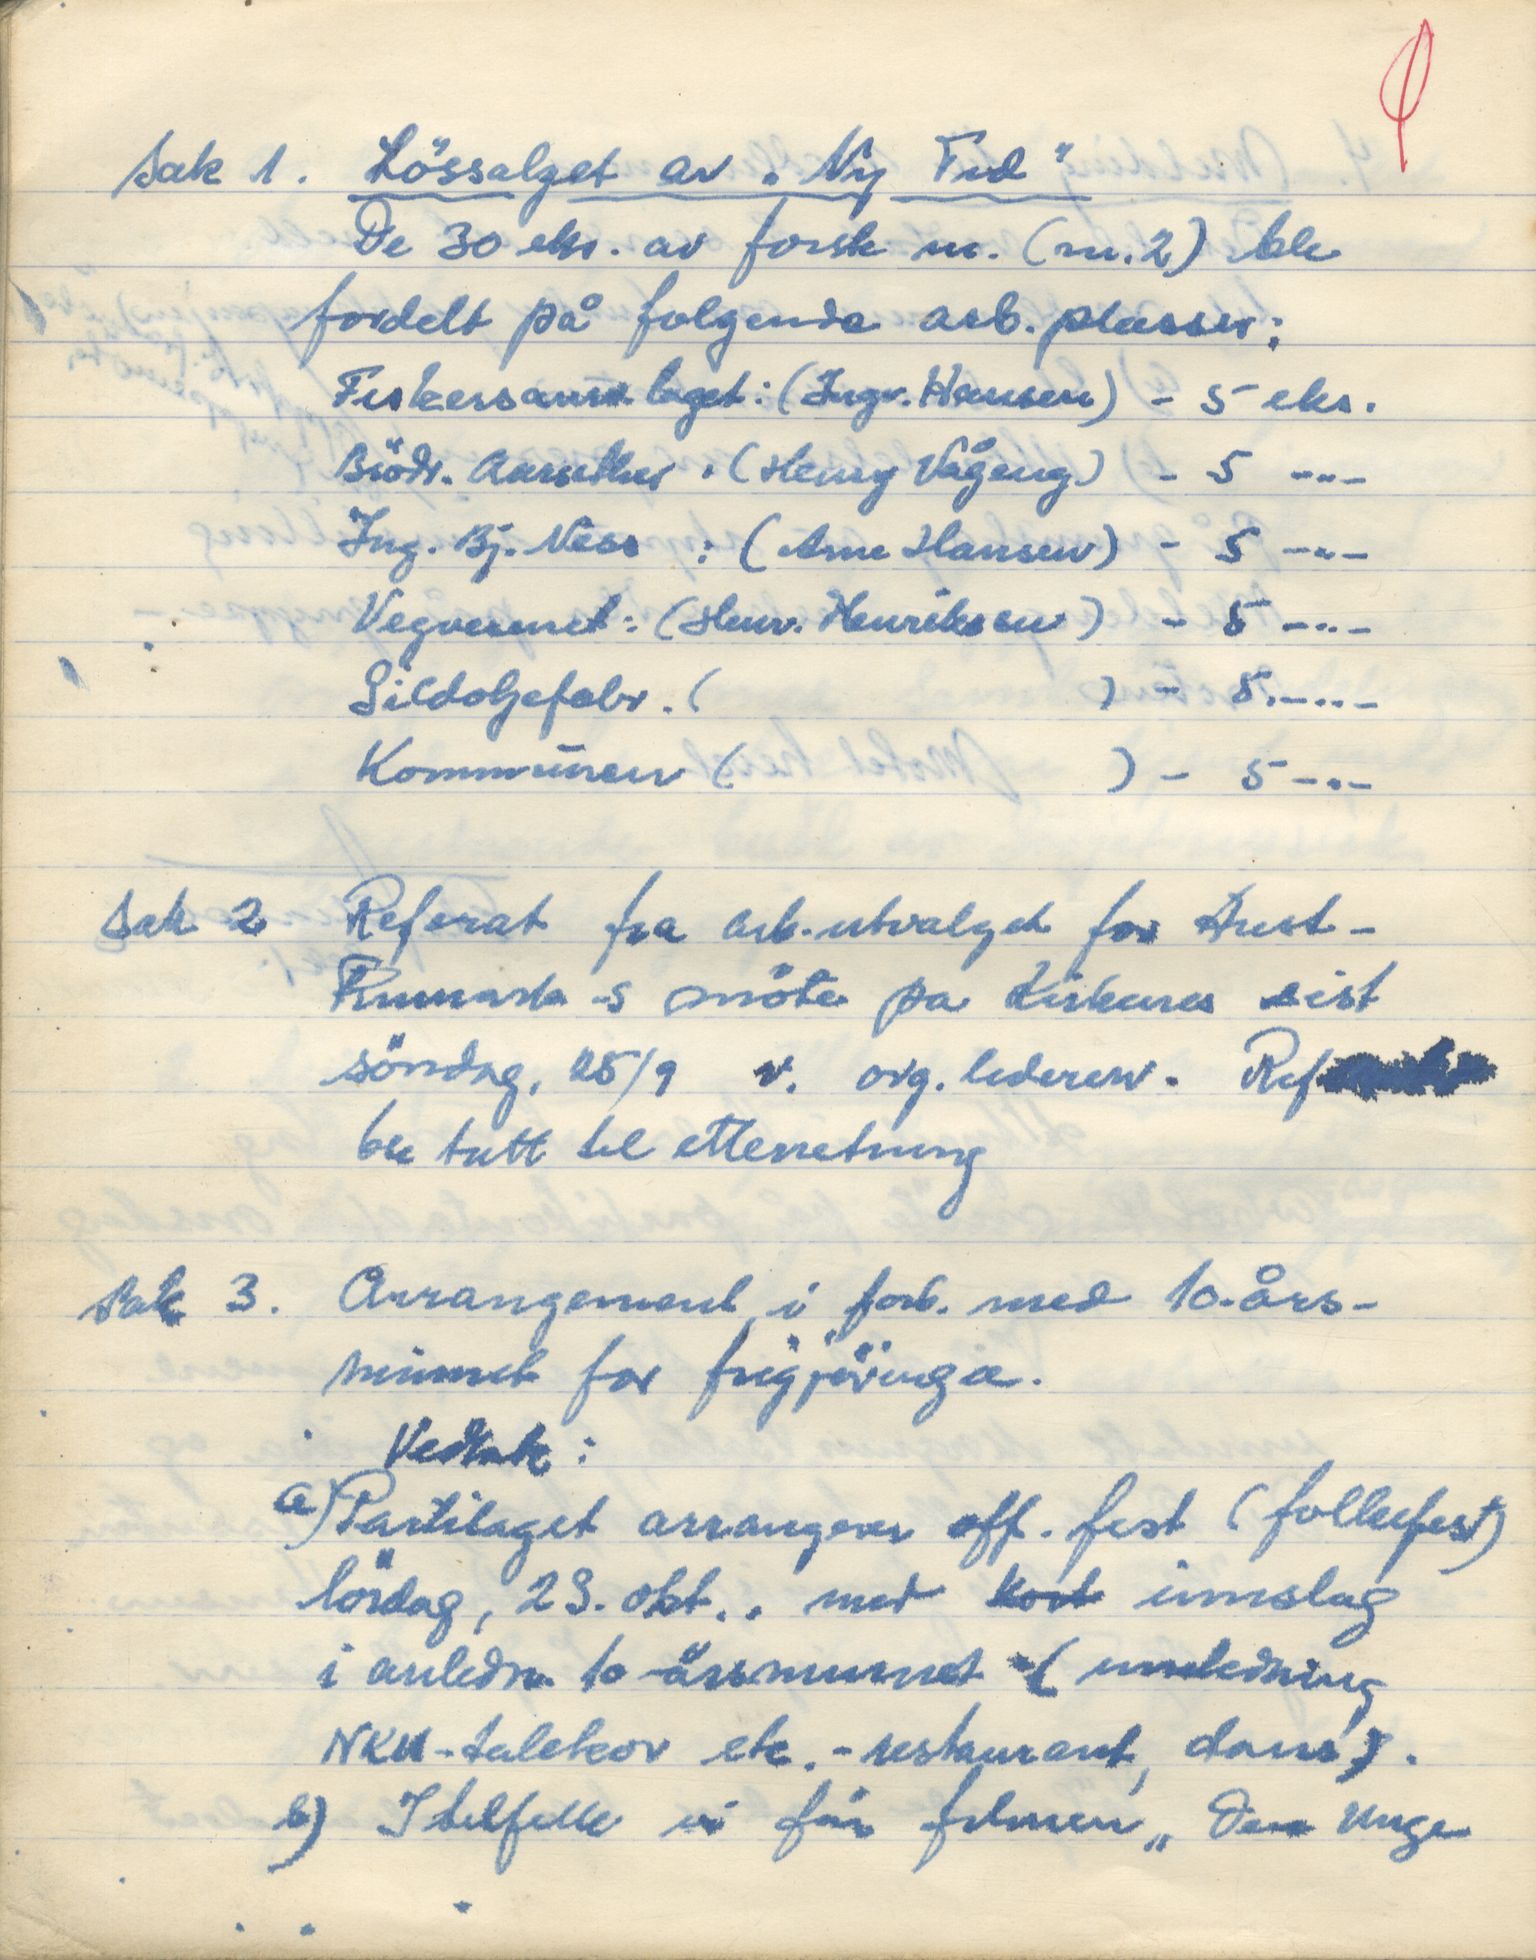 Sak 1. Lössalget av "Ny Tid"
De 30 eks. av forste nr. (nr. 2) ble
fordelt på folgende arb. plasser:
Fiskersamvirkelaget: (Ingv. Hansen) - 5 eks.
Brödr. Aarsæther. (Henry Vågeng) - 5 -"-
Ing. Bj. Ness : (Arne Hansen) - 5 -"-
Vegvesenet: (Henr. Henriksen) - 5 -"-
Sildoljefabr. ( ) - 5 -"-
Kommunen ( ) - 5 -"-
Sak 2 Referat fra arb.utvalget for Aust-
Finnmark -s möte pa Kirkenes sist
söndag, 25/9 v. org. lederen. Ref.
ble tatt til etterretning
Sak 3. Arrangement i forb. med 10-års-
minnet for frigjöringa.
Vedtak:
a) Partilaget arrangerer off. fest (folkefest)
lördag, 29. okt.. med kort innslag
i anledn. 10 årsminnet (innledning
NKU-talekor etc. - restaurant, dans).
b) I tilfelle vi får filmen "Den Unge